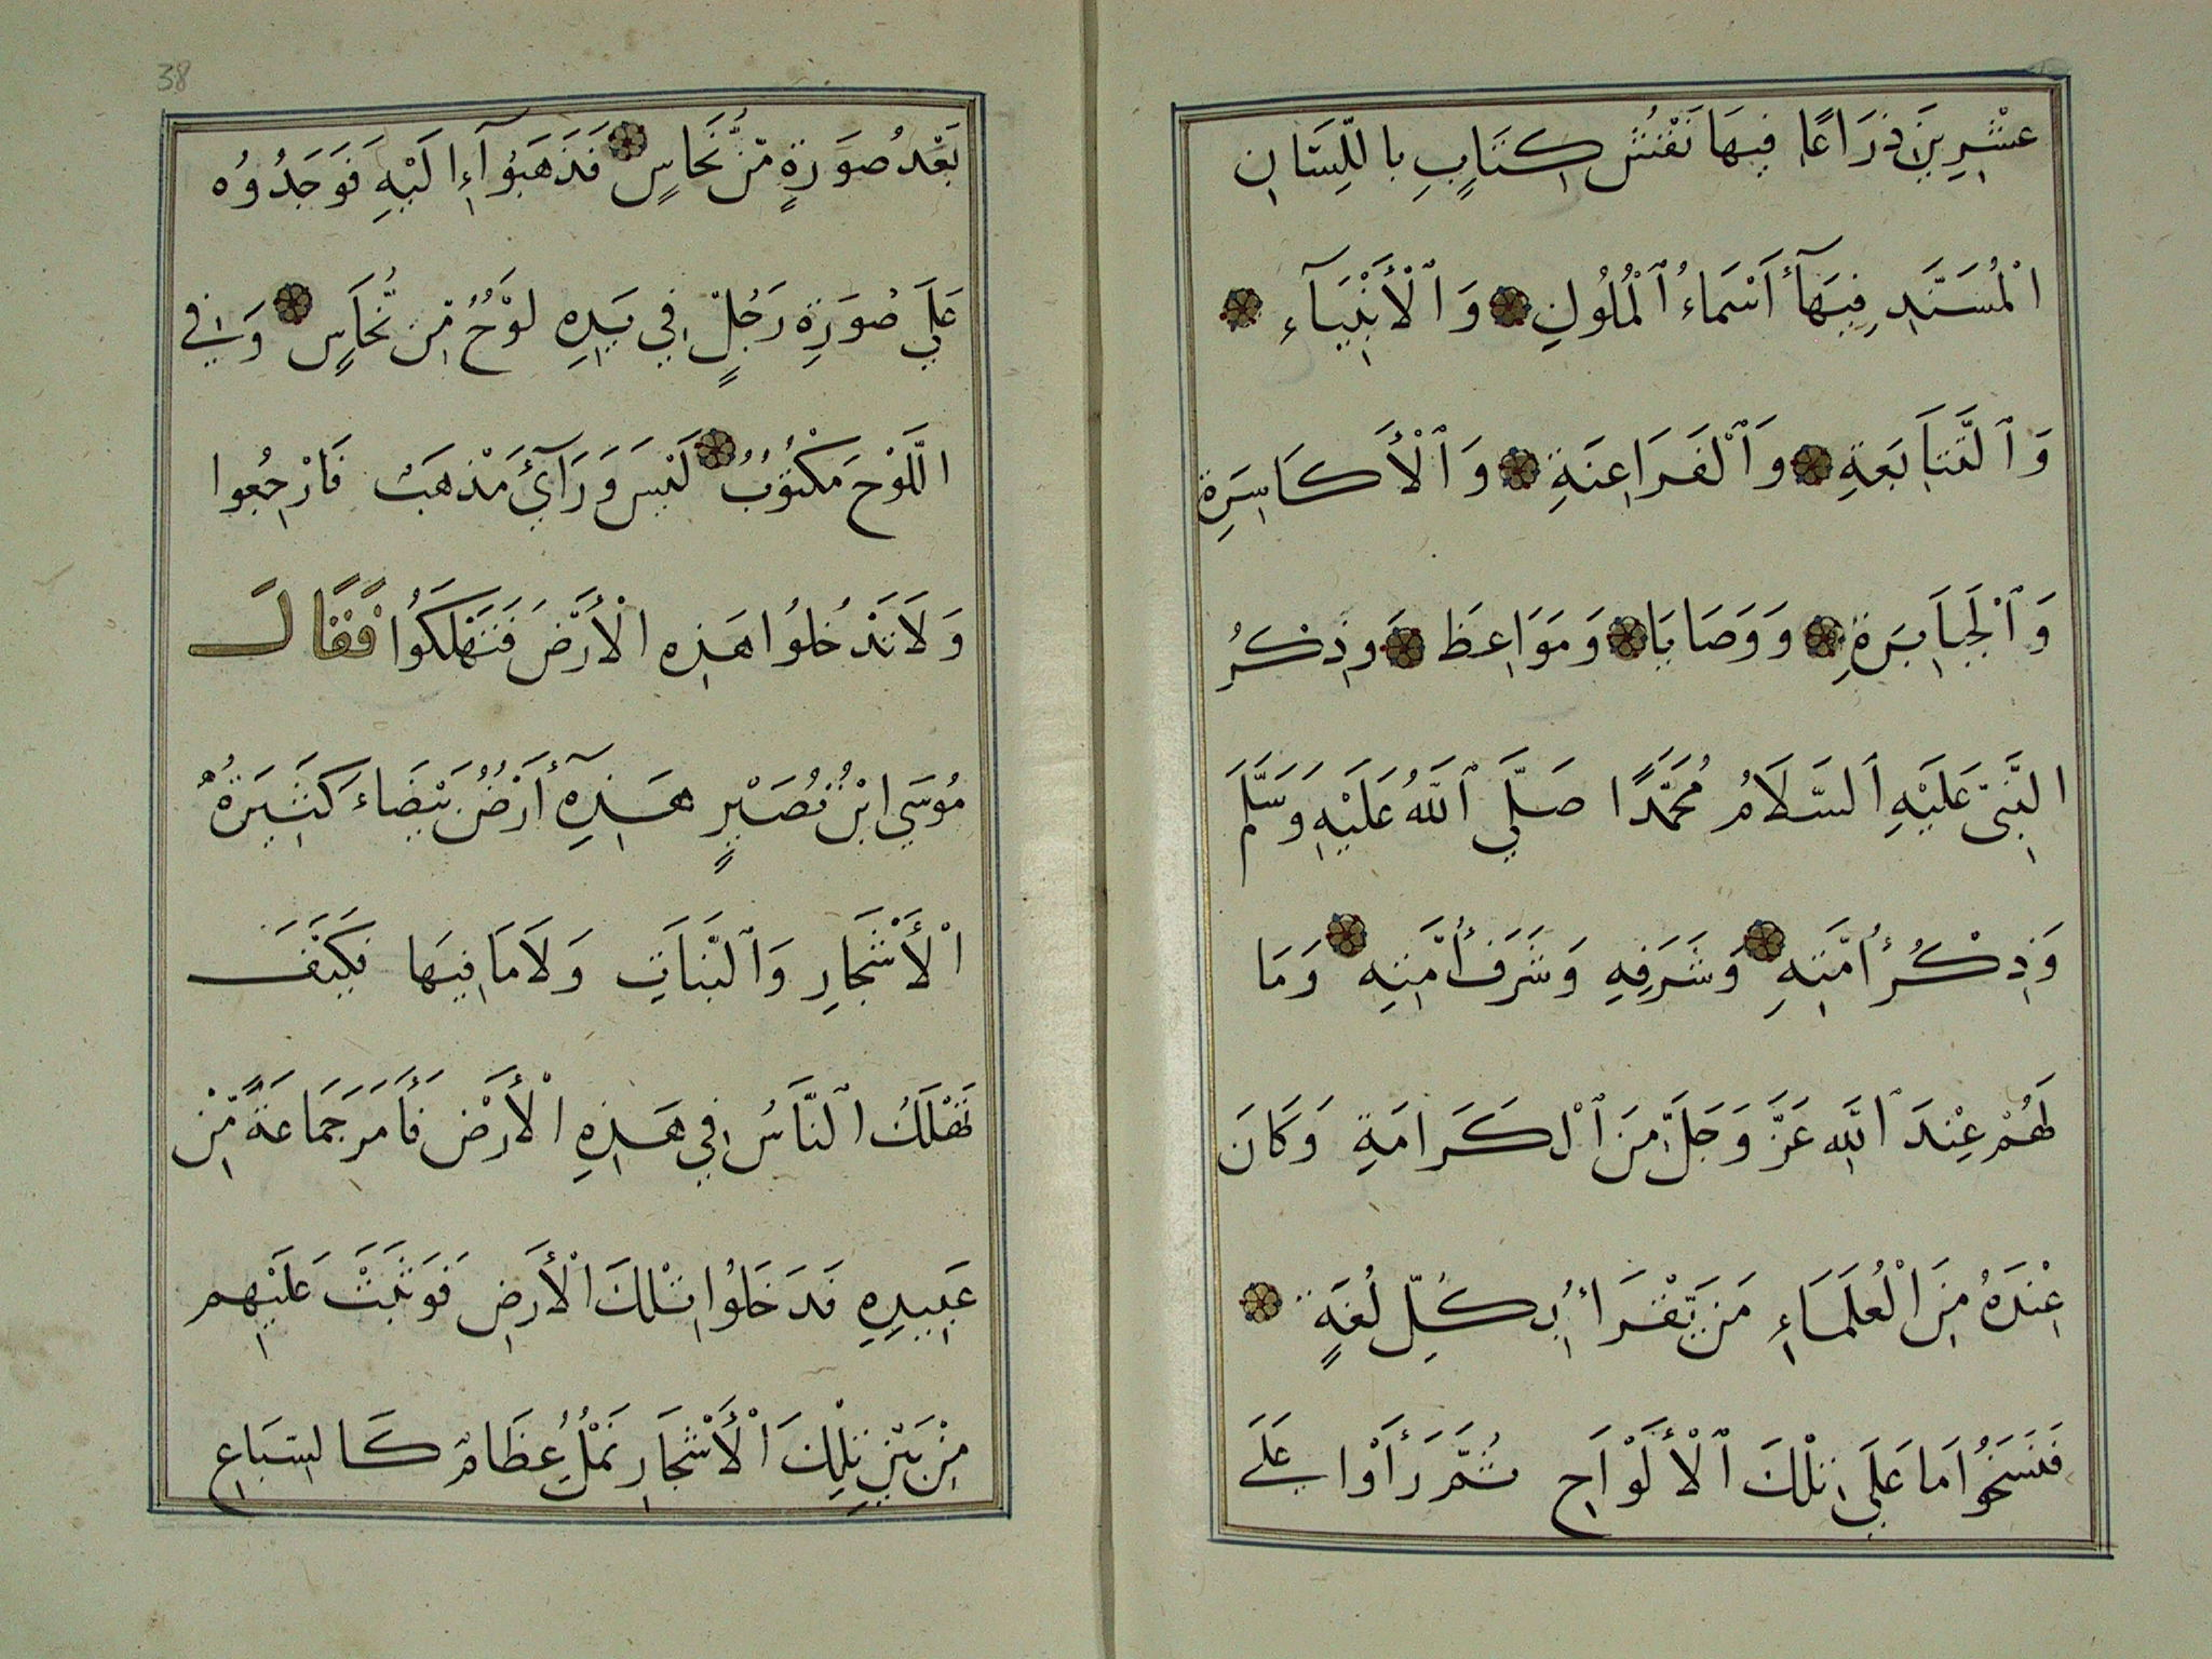 عِشْرِينَ ذِرَاعًا فِيهَا نَقْشُ كِتَابٍ بِاللِّسَانِ
الْمُسَنَّدِ فِيهَآ أَسْمَاءُ ٱلْمُلُوكِ وَٱلْأَنْبِيَآءِ
وَٱلتَّتَابَعَةِ وَٱلْفَرَاعِنَةِ وَٱلْأَكَاسِرَةِ
وَٱلْجَبَابِرَةِ وَوَصَايَا وَمَوَاعِظَ وَذِكْرُ
النَّبِيّ عَلَيْهِ ٱلسَّلَامُ مُحَمَّدًا صَلَّي ٱللَّهُ عَلَيْهِ وَسَلَّمَ
وَذِكْرُ أُمَّتِهِ وَشَرَفِهِ وَشَرَفُ أُمَّتِهِ وَمَا
لَهُمْ عِنْدَ ٱللَّهِ عَزَّ وَجَلَّ مِنَ ٱلْكَرَامَةِ وَكَانَ
عِنْدَهُ مِنَ الْعُلَمَاءِ مَن يَّقْرَأُ بِكُلِّ لُغَةٍ
فَنَسَخُوا مَا عَلَي تِلْكَ ٱلْأَلْوَاحِ ثُمَّ رَأَوْا عَلَے
بَعْد صُورَةٍ مِّنْ نُّحَاسٍ فَذَهَبُوآ إِلَيْهِ فَوَجَدُوُه
عَلَي صُورَةِ رَجُلٍ فِي يَدِهِ لَوْحٌ مِّن نُّحَاسٍ وَفِي
اللَّوْحِ مَكْتُوبٌ لَيْسَ وَرَآئِ مَذْهَبٌ فَارْجِعُوا
وَلَا تَدْخُلُوا هَذِهِ الْأَرْضَ فَتَهْلَكُوا فَقَالَ
مُوسَي ابْنُ نُصَيْرٍ هَذِهِ أَرْضٌ بَيْضَاءُ كَثِيرَةُ
الْأَشْجَارِ وَٱلنَّبَاتِ وَلَا مَا فِيهَا فَكَيْفَ
تَهْلَكُ ٱلنَّاسُ فِي هَذِهِ الْأَرْضِ فَأَمَرَ جَمَاعَةً مِّنْ
عَبِيدِهِ فَدَخَلُوا تِلْكَ الْأَرْضِ فَوَثَبَتْ عَلَيْهِم
مِنْ بَيْنِ تِلْكَ ٱلْأَشْجَارِ نَمْلٌ عِظَامٌ كَالسِّبَاعِ
38